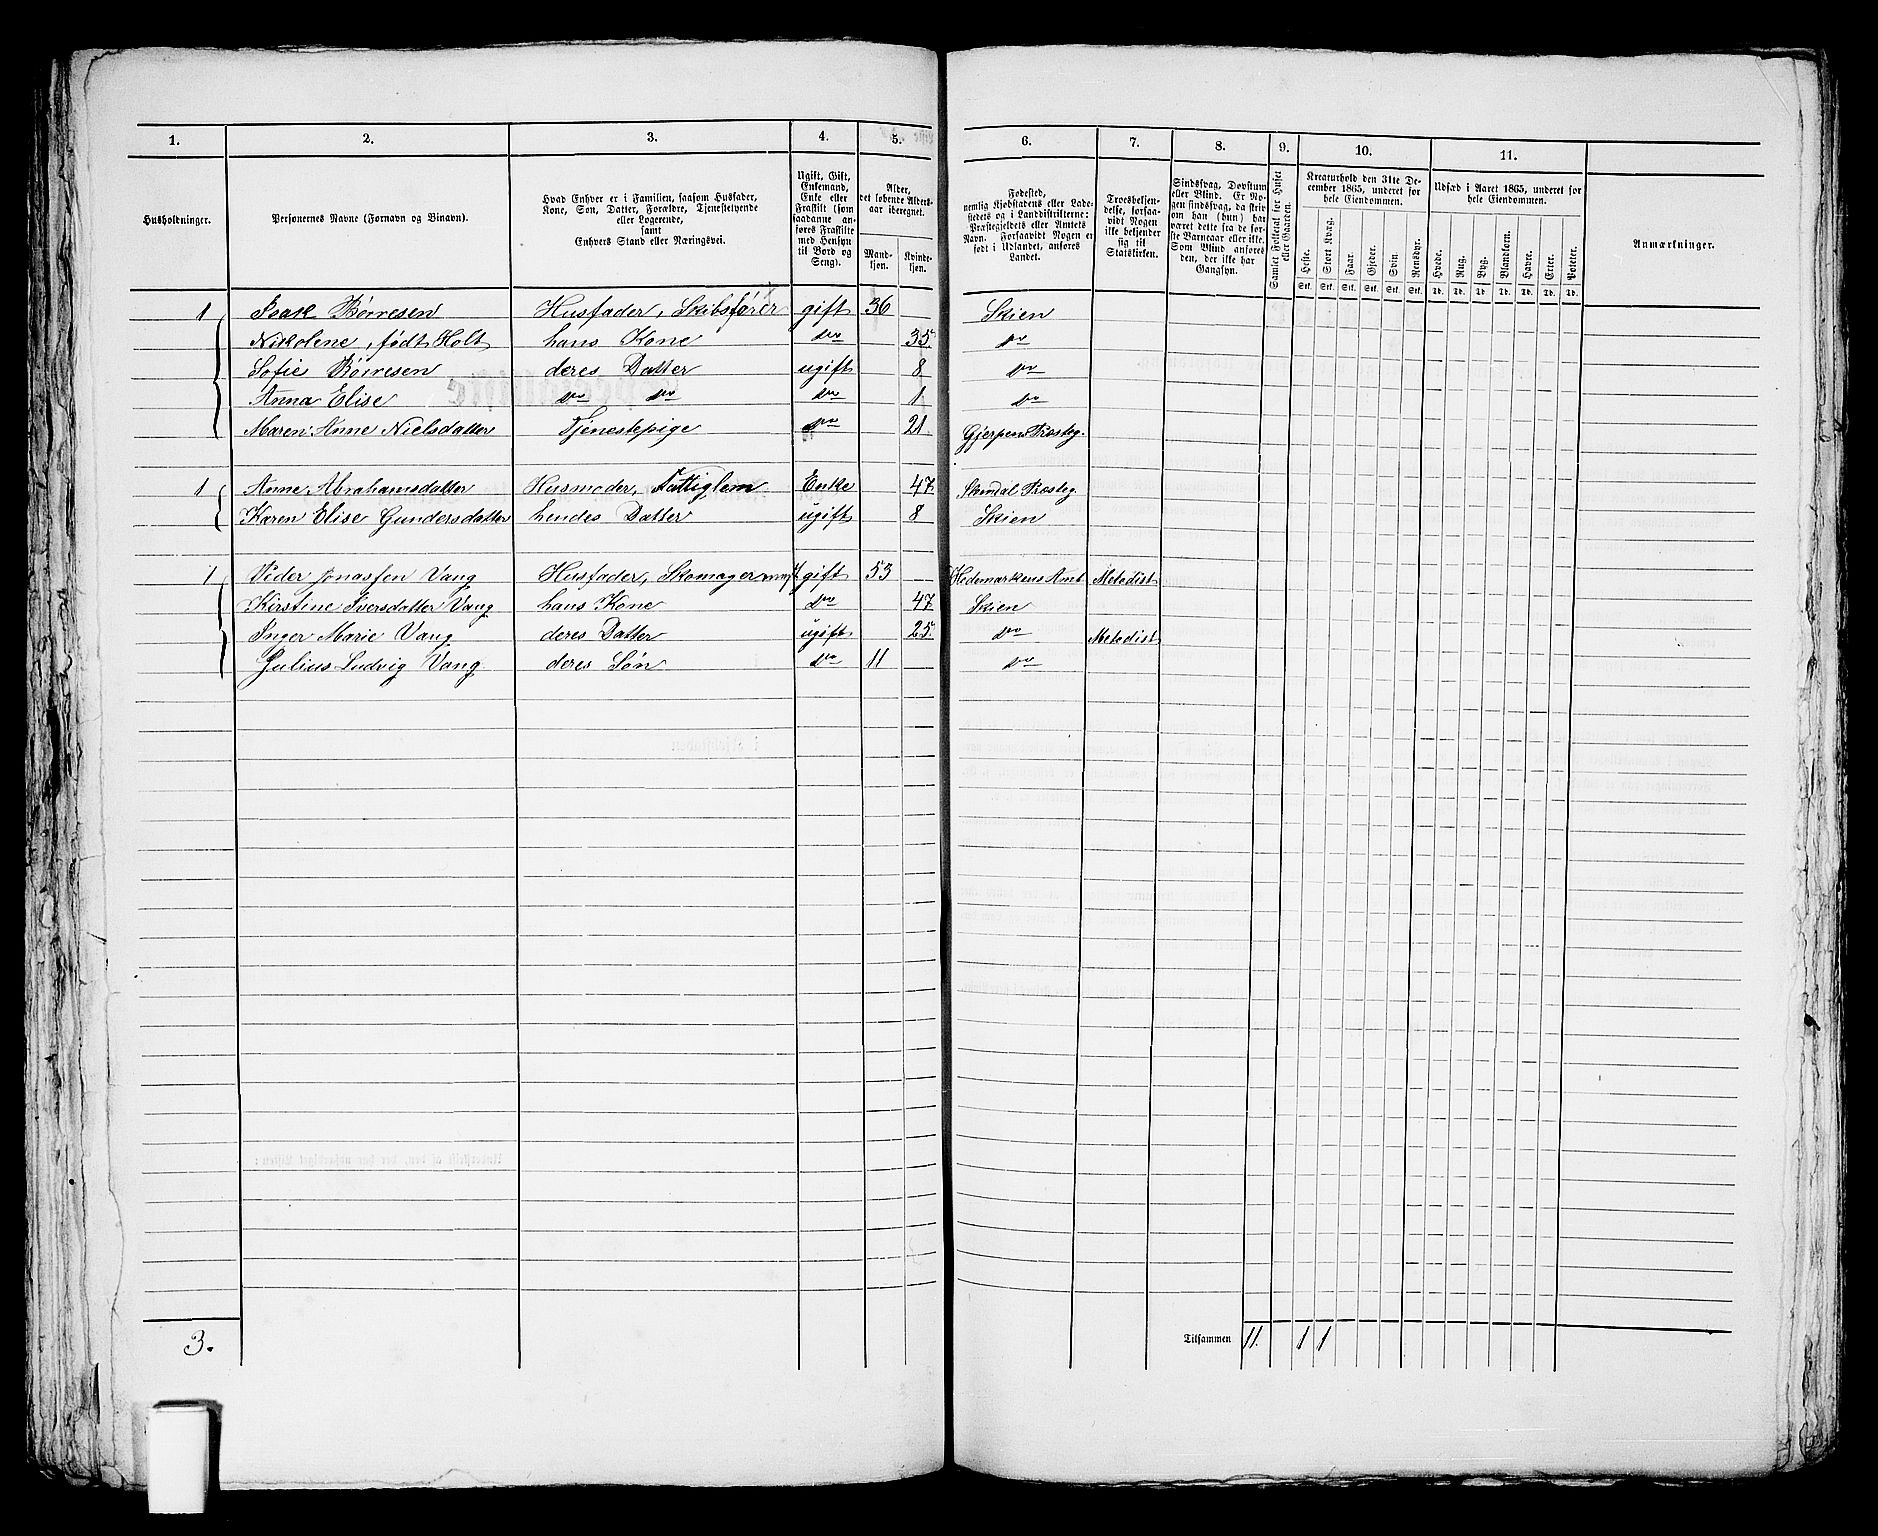 1. 2. 3. 4. 5. 6. 7. 8. 9. 10. 11.
Husholdninger.
Personernes Navne (Fornavn og Binavn).
Hvad Enhver er i Familien, saasom Husfader,
Kone, Søn, Datter, Forældre, Tjenestetyende
eller Logerende,
samt
Enhvers Stand eller Næringsvei.
Ugift, Gift,
Enkemand,
Enke eller
Fraskilt (som
saadanne an-
føres Fraskilte
med Hensyn
til Bord og
Seng).
Alder,
det løbende Alders-
aar iberegnet.
Mand-
kjøn.
Kvinde-
kjøn.
Fødested,
nemlig Kjøbstadens eller Lade-
stedets og i Landdistrikterne:
Præstegjeldets eller Annexets
Navn. Forsaavidt Nogen er
født i Udlandet, anføres
Landet.
Troesbekjen-
delse, forsaa-
vidt Nogen
ikke bekjender
sig til
Statskirken.
Sindssvag, Døvstum
eller Blind. Er No-
gen sindssvag, da skriv
om han (hun) har
været dette fra de før-
ste Barneaar eller ikke.
Som Blind anføres
den, der ikke har
Gangsyn.
Samlet Folketal for Huset
eller Gaarden.
Kreaturhold den 31te De-
cember 1865, underet for
hele Eiendommen.
Heste. Stort Kvæg. Faar. Gjeder. Svin. Rensdyr.
Stk. Stk. Stk. Stk. Stk. Stk.
Udsæd i Aaret 1865, underet for
hele Eiendommen.
Hvede. Rug. Byg. Blandkorn. Havre. Erter. Poteter.
Td. Td. Td. Td. Td. Td. Td.
Anmærkninger.
1 Isaak Börresen Husfader, Skibsfører gift 36 Skien
Nickolene, født Holt hans Kone do 35 do
Sofie Börresen deres Datter ugift 8 do
Anna Elise do do do 1 do
Maren Anne Nielsdatter Tjenestepige do 21 Gjerpens Præsteg.
1 Anne Abrahamsdatter Husmoder, Fattiglem Enke 47 Præsteg.
Karen Elise Gundersdatter hendes Datter ugift 8 Skien
1 Peder Jonassen Vang Husfader, Skomager gift 53 Hedemarkens Amt Metodist
Kirstine Iversdatter Vang hans Kone do 47 Skien
Inger Marie Vang deres Datter ugift 25 do Metodist
Julius Ludvig Vang deres Søn do 11 do
3. Tilsammen 11. 1 1